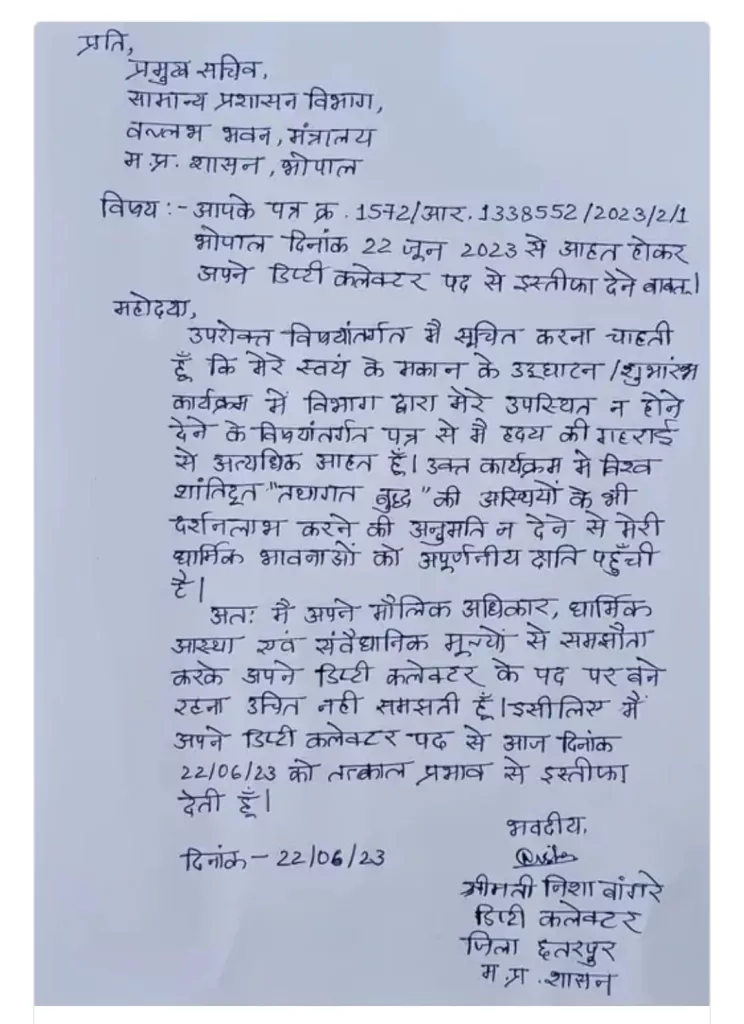 प्रति,
प्रमुख सचिव,
सामान्य प्रशासन विभाग,
वल्लभ भवन, मंत्रालय
म.प्र. शासन, भोपाल
विषय :- आपके पत्र क्र. 1572/आर. 1338552/2023/2/1
भोपाल दिनांक 22 जून 2023 से आहत होकर
अपने डिप्टी कलेक्टर पद से इस्तीफा देने बावत्।
महोदया,
उपरोक्त विषयांतर्गत मै सूचित करना चाहती
हूँ कि मेरे स्वयं के मकान के उद्घाटन /शुभारंभ
कार्यक्रम में विभाग द्वारा मेरे उपस्थित न होने
देने के विषयांतर्गत पत्र से मै हृदय की गहराई
से अत्यधिक आहत हूँ। उक्त कार्यक्रम मे विश्व
शांतिदूत "तथागत बुद्ध" की अस्थियों के भी
दर्शनलाभ करने की अनुमति न देने से मेरी
धार्मिक भावनाओं को अपूर्णनीय क्षति पहुँची
है।
अतः मै अपने मौलिक अधिकार, धार्मिक
आस्था एवं संवैधानिक मूल्यो से समझौता
करके अपने डिप्टी कलेक्टर के पद पर बने
रहना उचित नही समझती हूँ। इसीलिए मैं
अपने डिप्टी कलेक्टर पद से आज दिनांक
22/06/23 को तत्काल प्रभाव से इस्तीफा
देती हूँ।
भवदीय,
दिनांक - 22/06/23
श्रीमती निशा बांगरे
डिप्टी कलेक्टर
जिला छतरपुर
म.प्र. शासन